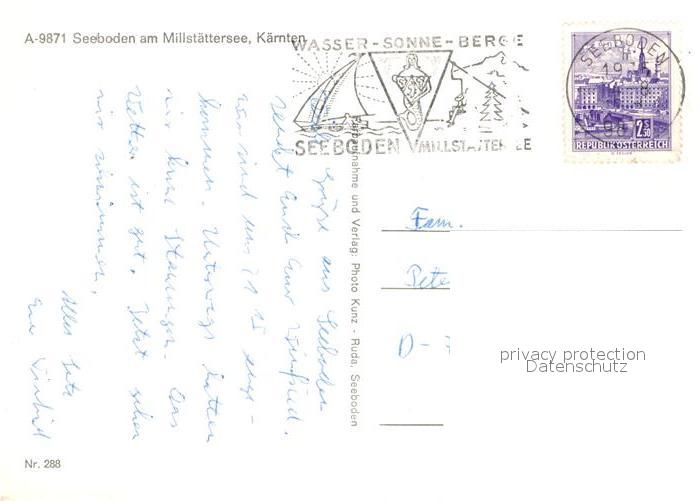 A-9871 Seeboden am Millstättersee, Kärnten
WASSER-SONNE-BERGE
SEEBODEN MILLSTÄTTERSEE
SEEBODEN
19
2S50
REPUBLIK ÖSTERREICH
Farbaufnahme und Verlag: Photo Kunz - Ruda, Seeboden
Grüße aus Seeboden
sendet Euch Euer Winfried.
Wir sind um 21 15 ange-
kommen. Unterwegs hatten
wir kurze Stauungen. Das
Wetter ist gut. Jetzt gehen
wir schwimmen.
Alles Gute
Euer Winfried
Fam.
Pete
D-
privacy protection
Datenschutz
Nr. 288